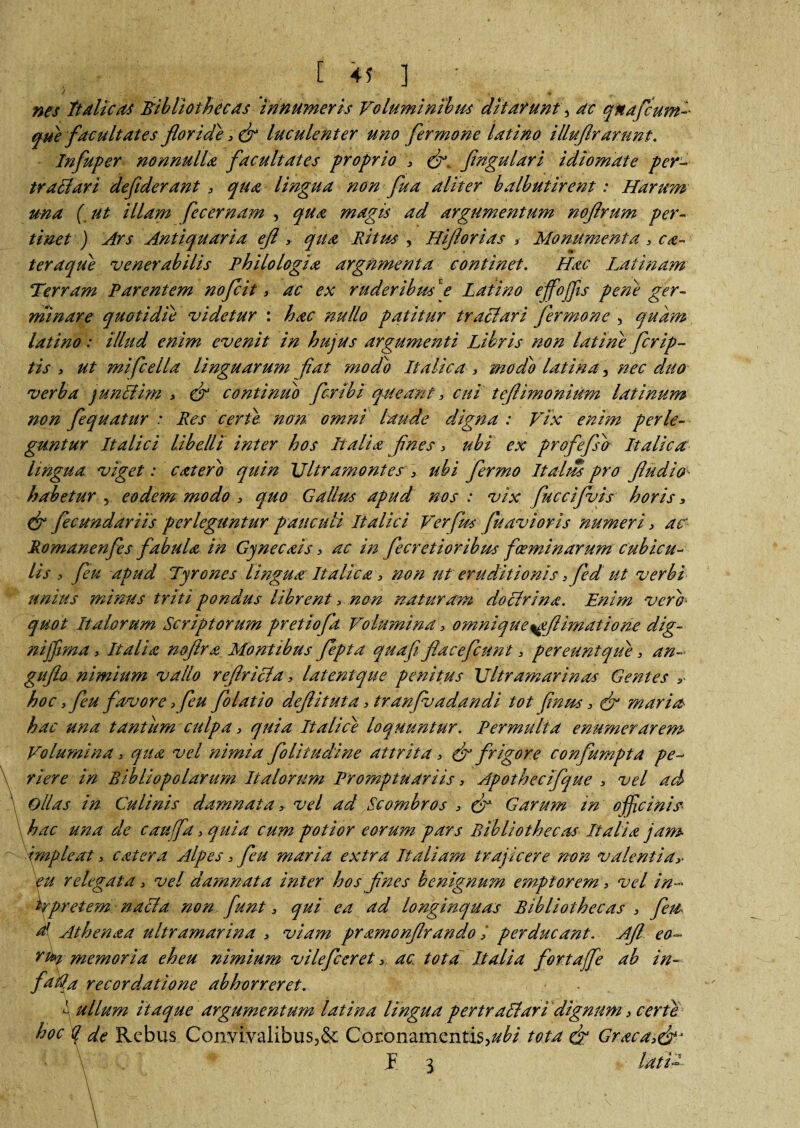 [ 45 ]
nes Italicas Bibliothecas innumeris Voluminibus ditarunt, ac quaſcum-
que facultates floride, & luculenter uno ſermone latino illuſtrarunt.
Inſuper nonnullæ facultates proprio, & ſingulari idiomate per-
tractari deſiderant, qua lingua non ſua aliter balbutirent : Harum
una ( ut illam ſecernam, quæ magis ad argumentum noſtrum per-
tinet ) Ars Antiquaria eſt, quæ Ritus, Hiſtorias, Monumenta, cæ-
teraque venerabilis Philologiæ argnmenta continet. Hæc Latinam
Terram Parentem noſcit, ac ex ruderibus e Latino effoſſis pene ger-
minare quotidie videtur : hæc nullo patitur tractari ſermone, quàm
latino : illud enim evenit in hujus argumenti Libris non latinè ſcrip-
tis, ut miſcella linguarum fiat modò Italica, modò latina, nec duo
verba junctim, & continuò ſcribi queant, cui teſtimonium latinum
non ſequatur : Res certè non omni laude digna : Vix enim perle-
guntur Italici libelli inter hos Italiæ fines, ubi ex profeſsò Italica
lingua viget : cæterò quin Ultramontes, ubi ſermo Italus pro ſtudio
habetur, eodem modo, quo Gallus apud nos : vix ſucciſvis horis,
& ſecundariis perleguntur pauculi Italici Verſus ſuavioris numeri, ac
Romanenſes fabulæ in Gynecæis, ac in ſecretioribus fœminarum cubicu-
lis, ſeu apud Tyrones linguæ Italicæ, non ut eruditionis, ſed ut verbi
unius minus triti pondus librent, non naturam doctrinæ. Enim verò
quot Italorum Scriptorum pretioſa Volumina, omnique æſtimatione dig-
niſſima, Italiæ noſtræ Montibus ſepta quaſi flaceſcunt, pereuntquè, an-
guſto nimium vallo reſtricta, latentque penitus Ultramarinas Gentes,
hoc, ſeu favore, ſeu ſolatio deſtituta, tranſvadandi tot ſinus, & maria
hac una tantùm culpa, quia Italicè loquuntur. Permulta enumerarem
Volumina, quæ vel nimia ſolitudine attrita, & frigore conſumpta pe-
riere in Bibliopolarum Italorum Promptuariis, Apothecifque, vel ad
Ollas in Culinis damnata, vel ad Scombros, & Garum in officinis
hac una de cauſſa, quia cum potior eorum pars Bibliothecas Italiæ jam
impleat, cætera Alpes, ſeu maria extra Italiam trajicere non valentia,
eu relegata, vel damnata inter hos fines benignum emptorem, vel in-
pretem nacta non ſunt, qui ea ad longinquas Bibliothecas, ſeu
Athenæa ultramarina, viam præmonſtrando, perducant. Aſt eo-
memoria eheu nimium vileſceret, ac tota Italia fortaſſe ab in-
recordatione abhorreret.
ullum itaque argumentum latina lingua pertractari dignum, certè
hoc de Rebus Convivalibus,& Coronamentis, ubi tota & Græca,&
F 3 lati-